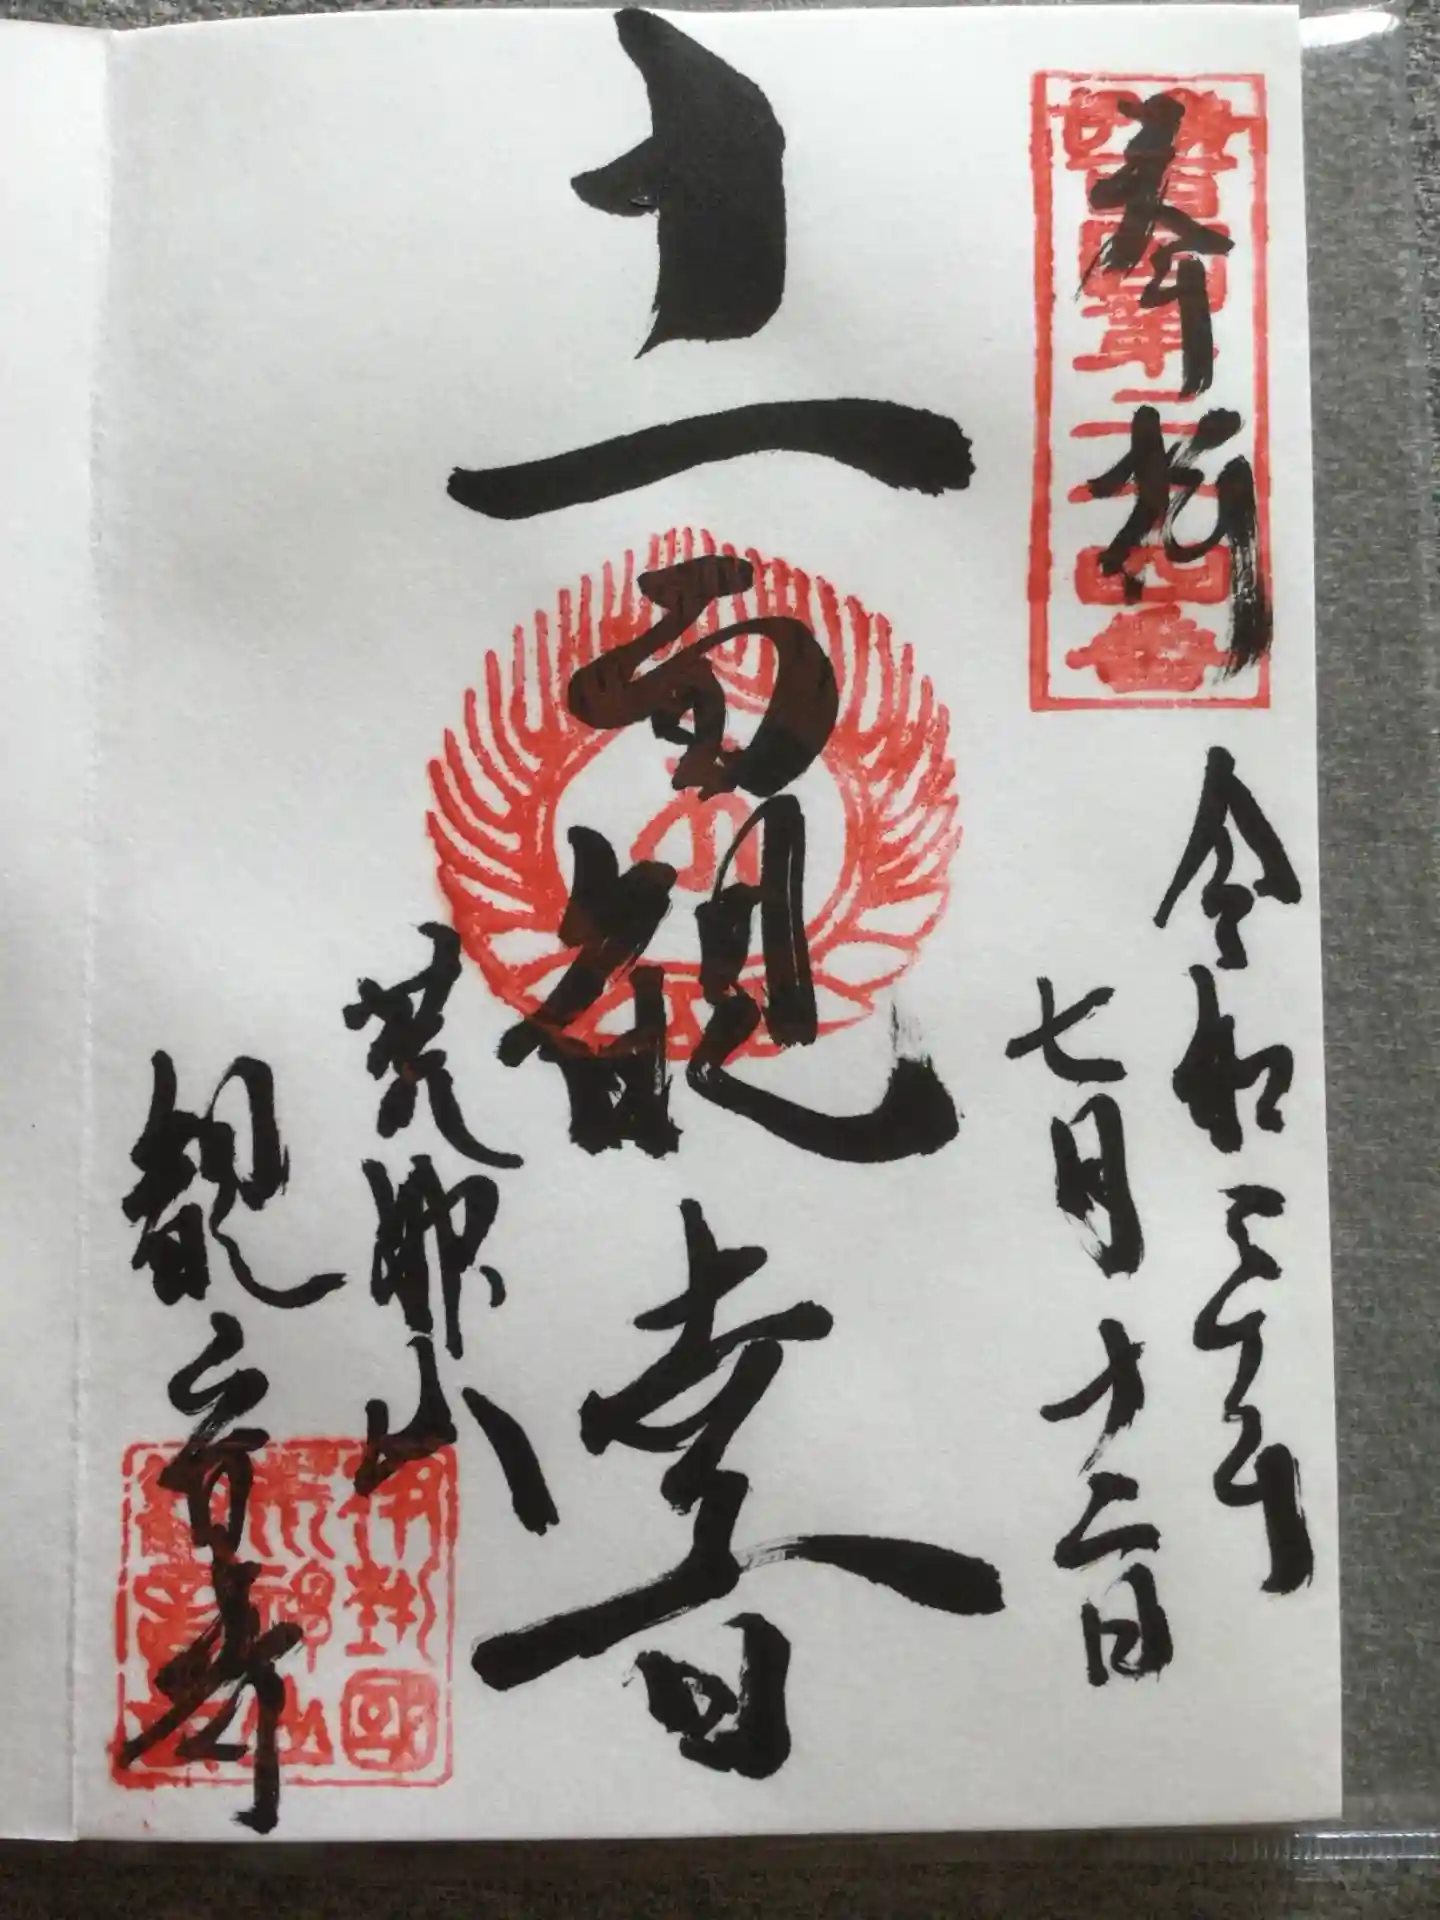 奉拝
国第二十四番
令和三年
七月十二日
十一面観音
荒神山
観音寺
伊勢國
荒神山
観音寺